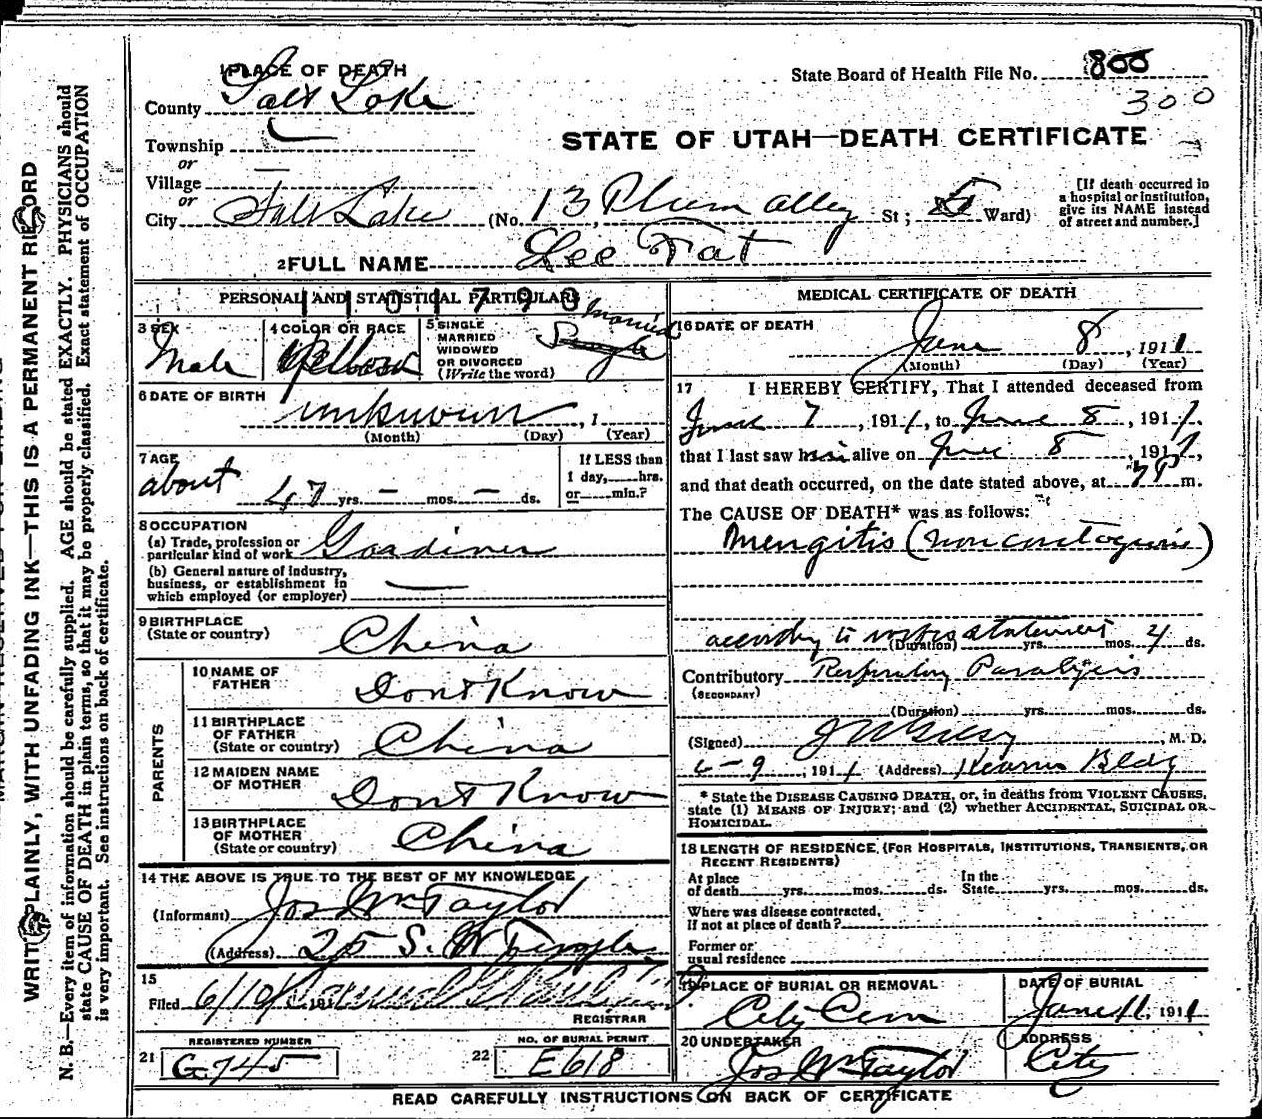 1 PLACE OF DEATH
County Salt Lake
Township
or
Village
or
City Salt Lake (No. 13 Plum alley St; 5 Ward)
State Board of Health File No. 800
300
STATE OF UTAH—DEATH CERTIFICATE
[If death occurred in a hospital or institution, give its NAME instead of street and number.]
2 FULL NAME Lee Fat
PERSONAL AND STATISTICAL PARTICULARS
1101790
3 SEX
Male
4 COLOR OR RACE
Yellow
5 SINGLE MARRIED WIDOWED OR DIVORCED (Write the word)
Married
Single
6 DATE OF BIRTH
unknown, 1
(Month) (Day) (Year)
7 AGE
about 47 yrs. – mos. – ds.
If LESS than 1 day, hrs. or min.?
8 OCCUPATION
(a) Trade, profession or particular kind of work Gardiner
(b) General nature of industry, business, or establishment in which employed (or employer)
9 BIRTHPLACE
(State or country) China
PARENTS
10 NAME OF FATHER Dont Know
11 BIRTHPLACE OF FATHER (State or country) China
12 MAIDEN NAME OF MOTHER Dont Know
13 BIRTHPLACE OF MOTHER (State or country) China
14 THE ABOVE IS TRUE TO THE BEST OF MY KNOWLEDGE
(Informant) Jos Wm Taylor
(Address) 25 S. W Temple
15
Filed 6/10 191
REGISTRAR
REGISTERED NUMBER
21 G745
NO. OF BURIAL PERMIT
22 E618
MEDICAL CERTIFICATE OF DEATH
16 DATE OF DEATH
June 8, 1911
(Month) (Day) (Year)
17 I HEREBY CERTIFY, That I attended deceased from
June 7, 1911, to June 8, 1911,
that I last saw him alive on June 8, 1911,
and that death occurred, on the date stated above, at m.
The CAUSE OF DEATH* was as follows:
Mengitis (non contagious)
according to statement
(Duration) yrs. mos. 4 ds.
Contributory Respiratory Paralysis
(SECONDARY)
(Duration) yrs. mos. ds.
(Signed) , M. D.
6-9, 1911 (Address) Kearns Bldg
* State the DISEASE CAUSING DEATH, or, in deaths from VIOLENT CAUSES, state (1) MEANS OF INJURY; and (2) whether ACCIDENTAL, SUICIDAL OR HOMICIDAL.
18 LENGTH OF RESIDENCE, (FOR HOSPITALS, INSTITUTIONS, TRANSIENTS, OR RECENT RESIDENTS)
At place of death yrs. mos. ds. In the State yrs. mos. ds.
Where was disease contracted, If not at place of death?
Former or usual residence
19 PLACE OF BURIAL OR REMOVAL
City Cem
DATE OF BURIAL
June 11, 1911
20 UNDERTAKER
Jos Wm Taylor
ADDRESS
City
READ CAREFULLY INSTRUCTIONS ON BACK OF CERTIFICATE
WRITE PLAINLY, WITH UNFADING INK—THIS IS A PERMANENT RECORD
N. B.—Every item of information should be carefully supplied. AGE should be stated EXACTLY. PHYSICIANS should
state CAUSE OF DEATH in plain terms, so that it may be properly classified. Exact statement of OCCUPATION
is very important. See instructions on back of certificate.